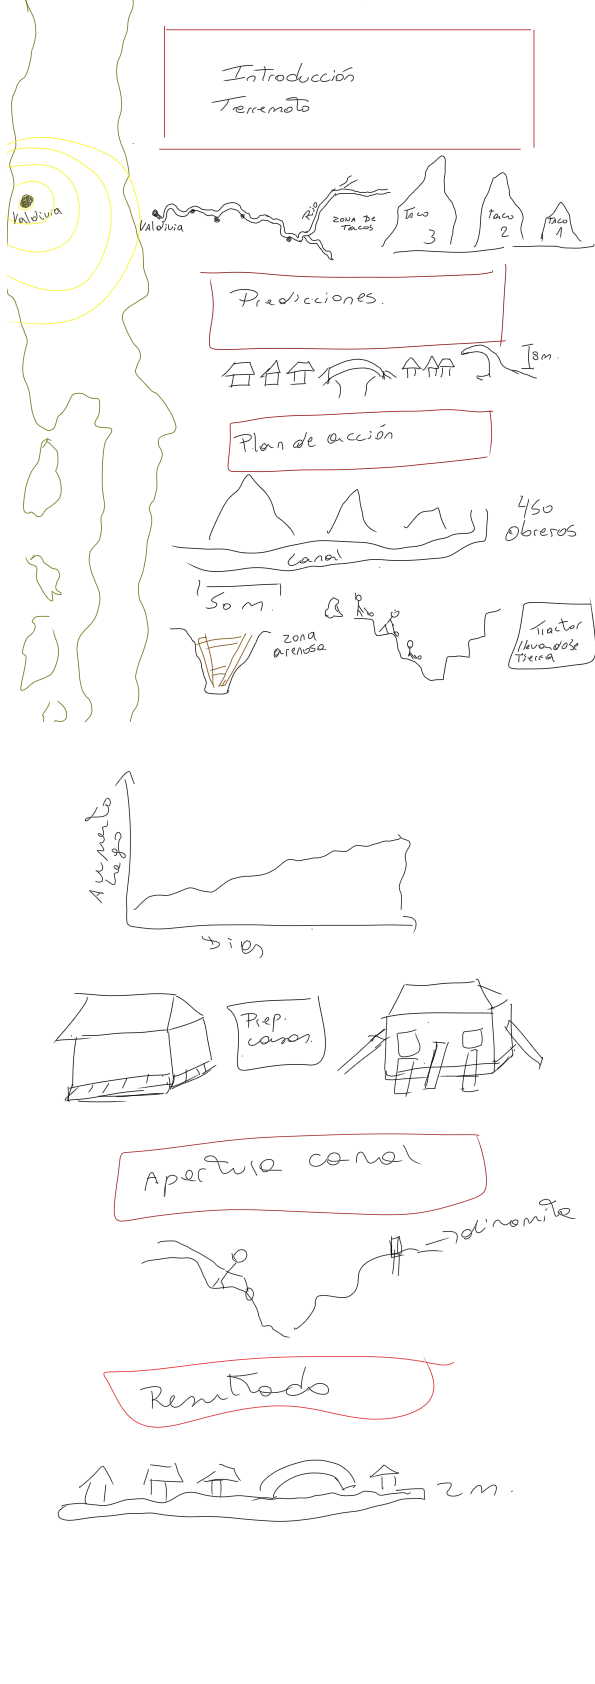 Introducción
Terremoto
Valdivia
Valdivia
Río
ZONA DE
TACOS
Taco
3
Taco
2
TACO
1
Predicciones.
8m.
Plan de acción
450
Obreros
Canal
50 m.
zona
arenosa
Tractor
llevandose
Tierra
Aumento
Lago
Días
Prep.
casas.
Apertura canal
dinamita
Resultado
2 m.